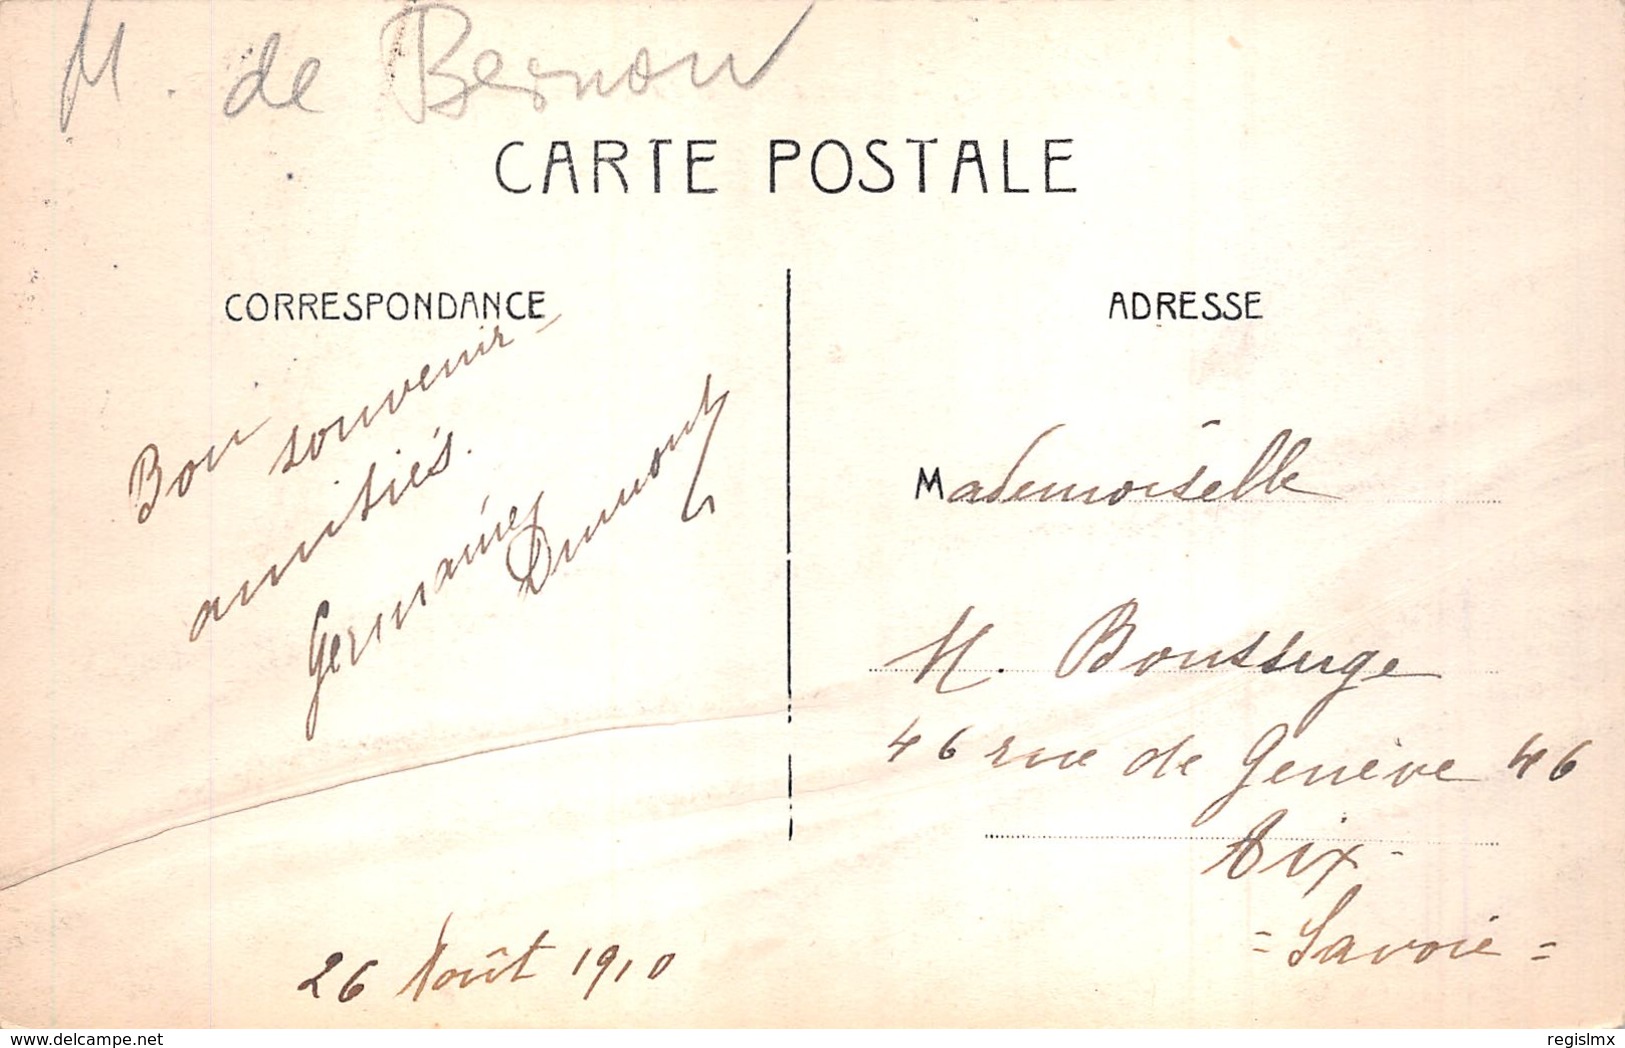 M. de Bernou
CARTE POSTALE
CORRESPONDANCE
Bon souvenir -
amitiés.
Germaine
Dumont
26 Août 1910
ADRESSE
Mademoiselle
M. Boussuge
46 rue de Genève 46
Aix-
= Savoie =
delcampe.net
regislmx